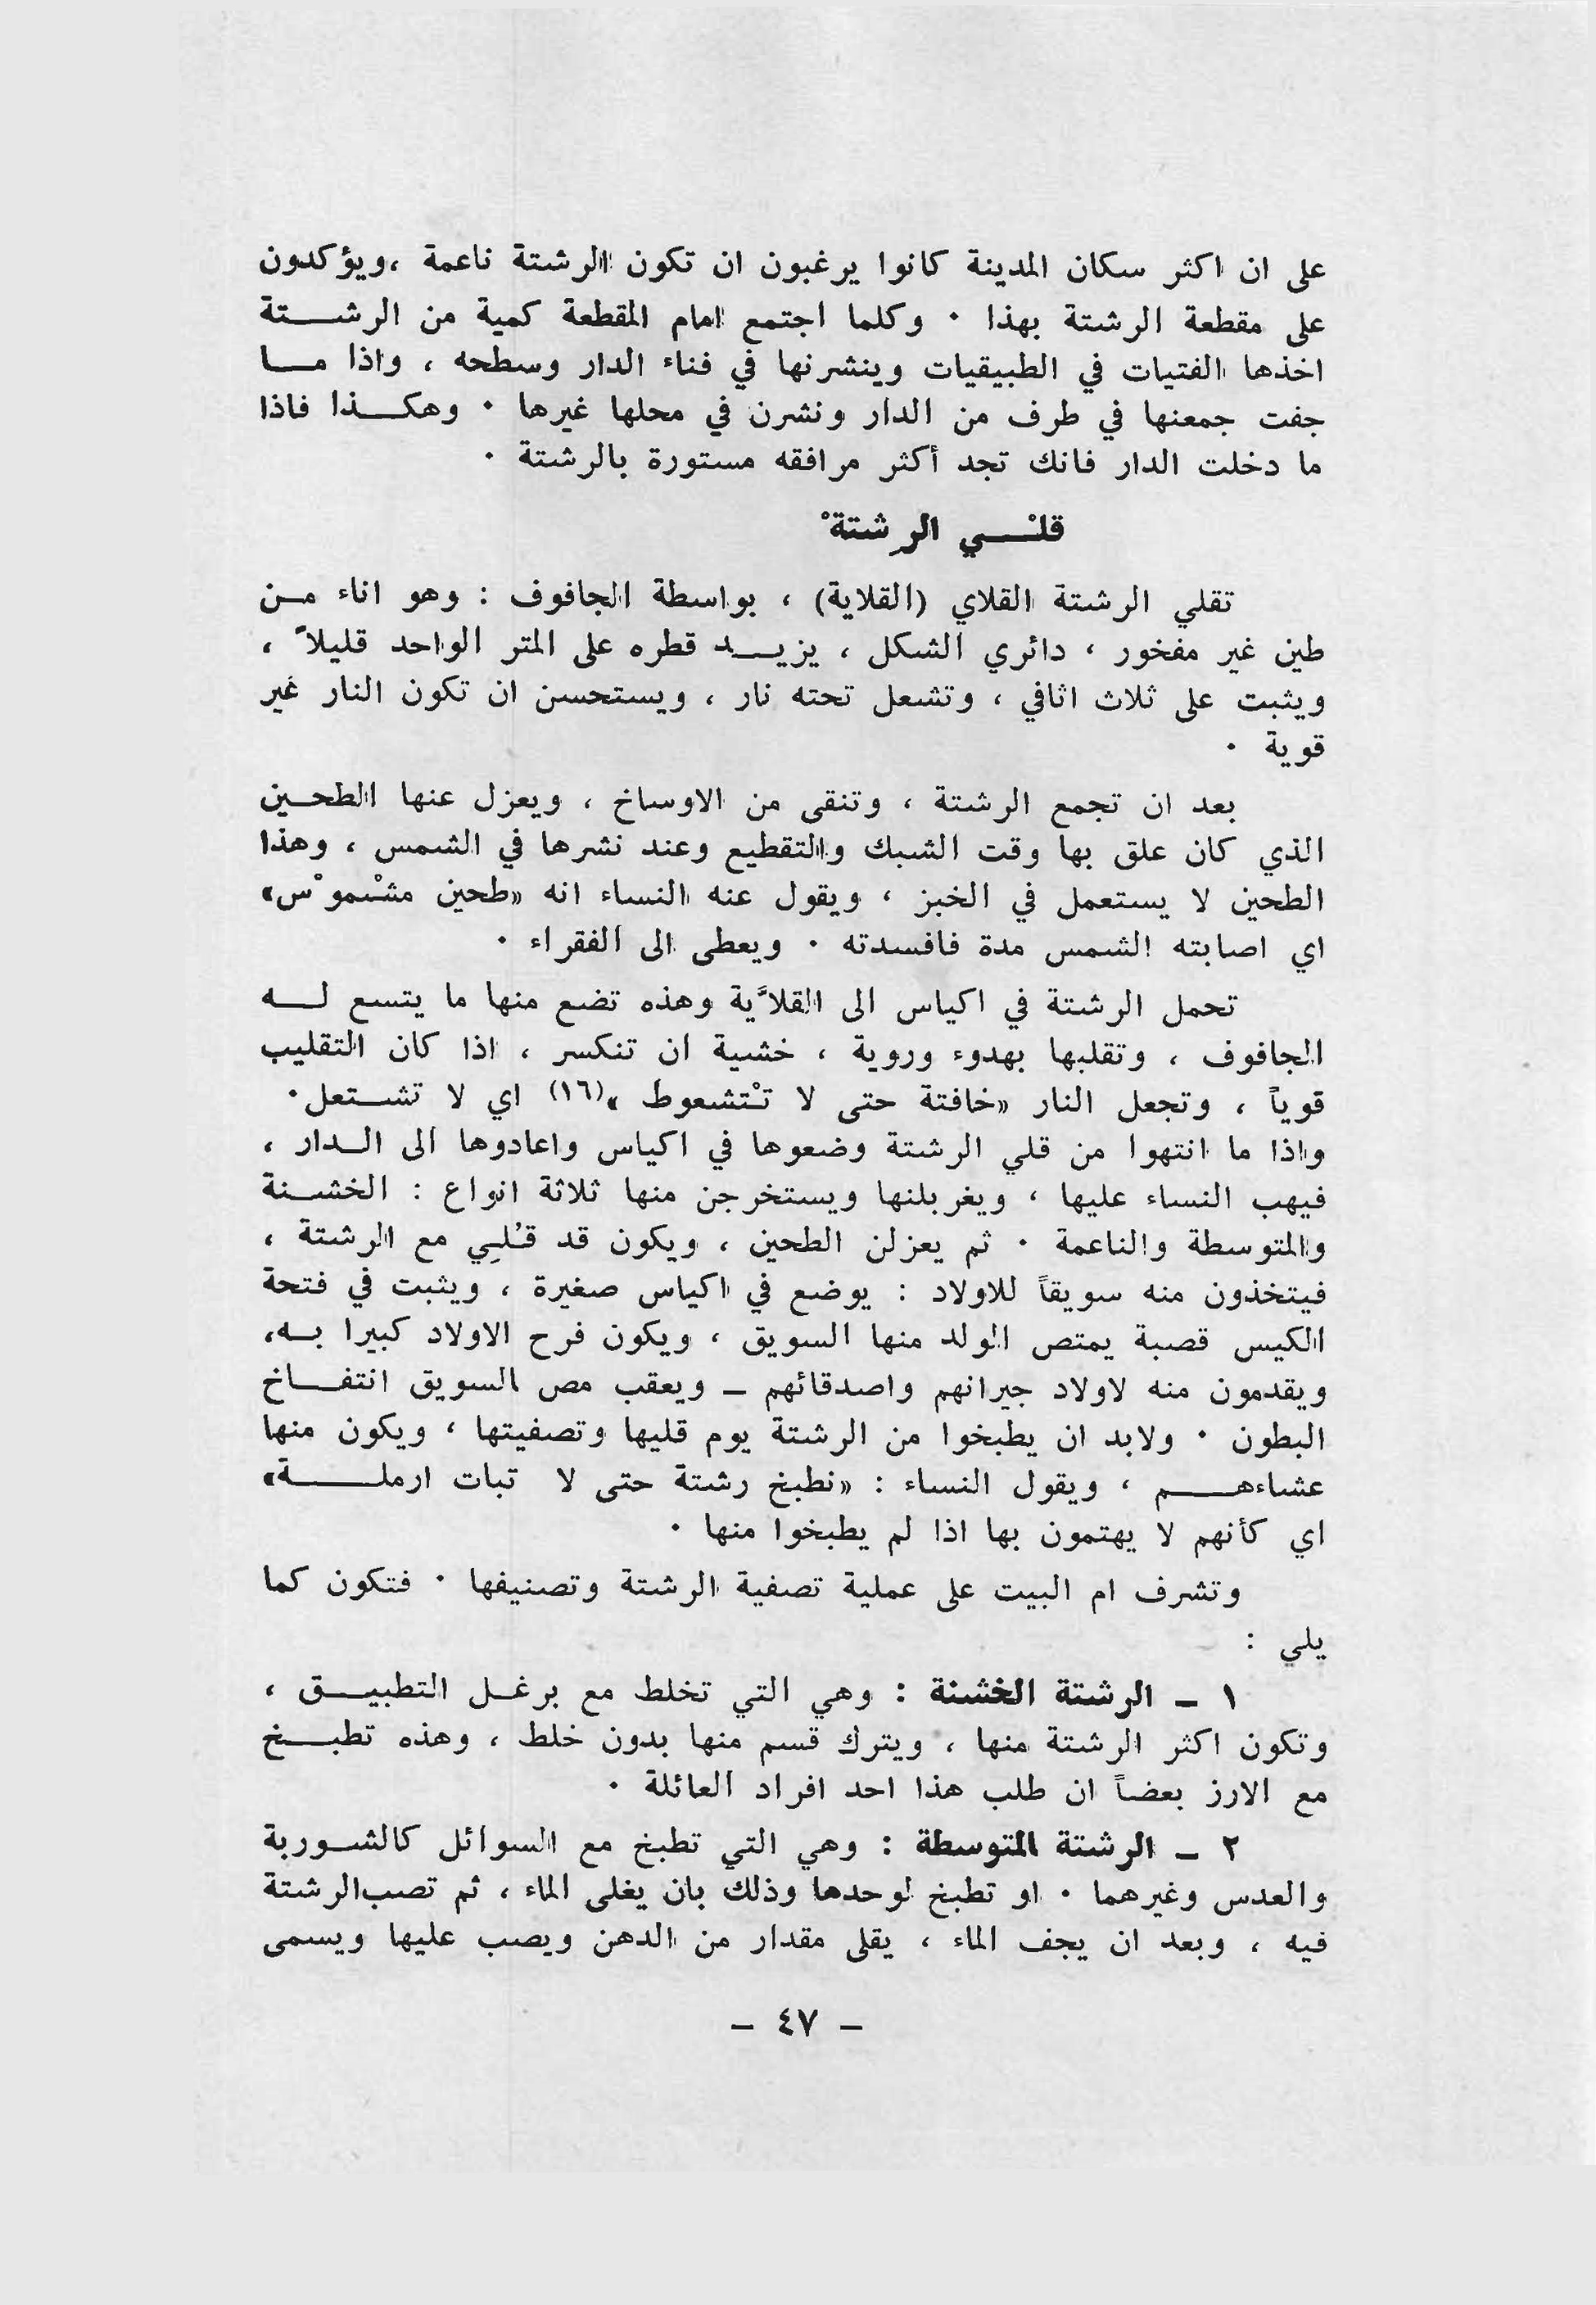 على ان اكثر سكان المدينة كانوا يرغبون ان تكون الرشتة ناعمة ،ويؤكدون
على مقطعة الرشتة بهذا · وكلما اجتمع امام المقطعة كمية من الرشـــتة
اخذها الفتيات في الطبيقيات وينشرنها في فناء الدار وسطحه ، واذا مـــا
جفت جمعنها في طرف من الدار ونشرن في محلها غيرها · وهكـــذا فاذا
ما دخلت الدار فانك تجد أكثر مرافقه مستورة بالرشتة ·
قلـْـــي الرشتةْ
تقلي الرشتة القلاي (القلاية) ، بواسطة الجافوف : وهو اناء مـن
طين غير مفخور ، دائري الشكل ، يزيـــد قطره على المتر الواحد قليلاً ،
ويثبت على ثلاث اثافي ، وتشعل تحته نار ، ويستحسن ان تكون النار غير
قوية ·
بعد ان تجمع الرشتة ، وتنقى من الاوساخ ، ويعزل عنها الطحـين
الذي كان علق بها وقت الشبك والتقطيع وعند نشرها في الشمس ، وهذا
الطحين لا يستعمل في الخبز ، ويقول عنه النساء انه «طحين مشْموْس»
اي اصابته الشمس مدة فافسدته · ويعطى الى الفقراء ·
تحمل الرشتة في اكياس الى القلاّية وهذه تضع منها ما يتسع لـــه
الجافوف ، وتقلبها بهدوء وروية ، خشية ان تنكسر ، اذا كان التقليب
قوياً ، وتجعل النار «خافتة حتى لا تْتشعوط »(١٦) اي لا تشـتعل·
واذا ما انتهوا من قلي الرشتة وضعوها في اكياس واعادوها الى الـدار ،
فيهب النساء عليها ، ويغربلنها ويستخرجن منها ثلاثة انواع : الخشـنة
والمتوسطة والناعمة · ثم يعزلن الطحين ، ويكون قد قُلِي مع الرشتة ،
فيتخذون منه سويقاً للاولاد : يوضع في اكياس صغيرة ، ويثبت في فتحة
الكيس قصبة يمتص الولد منها السويق ، ويكون فرح الاولاد كبيرا بـه،
ويقدمون منه لاولاد جيرانهم واصدقائهم ـ ويعقب مص السويق انتفـاخ
البطون · ولابد ان يطبخوا من الرشتة يوم قليها وتصفيتها ، ويكون منها
عشاءهـــم ، ويقول النساء : «نطبخ رشتة حتى لا تبات ارملـــة»
اي كأنهم لا يهتمون بها اذا لم يطبخوا منها ·
وتشرف ام البيت على عملية تصفية الرشتة وتصنيفها · فتكون كما
يلي :
١ ـ الرشتة الخشنة : وهي التي تخلط مع برغـل التطبيـق ،
وتكون اكثر الرشتة منها ، ويترك قسم منها بدون خلط ، وهذه تطبـخ
مع الارز بعضاً ان طلب هذا احد افراد العائلة ·
٢ ـ الرشتة المتوسطة : وهي التي تطبخ مع السوائل كالشـوربة
والعدس وغيرهما · او تطبخ لوحدها وذلك بان يغلى الماء ، ثم تصب الرشتة
فيه ، وبعد ان يجف الماء ، يقلى مقدار من الدهن ويصب عليها ويسمى
ـ ٤٧ ـ